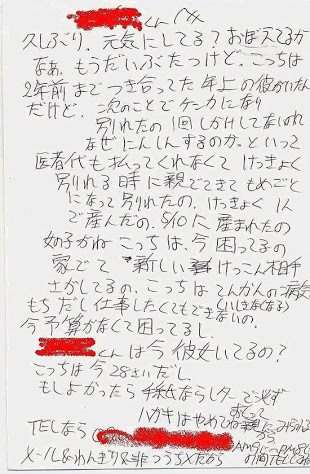 くんへ
久しぶり。元気にしてる？おぼえてるか
なぁ、もうだいぶたつけど。こっちは
2年前までつき合ってた年上の彼がいたん
だけど。次のことでケンカになり
別れたの1回しかけしてないのに
なぜにんしんするのか。といって
医者代も払ってくれなくてけっきょく
別れる時に親でてきてもめごと
になって別れたの。けっきょく1人
で産んだの。5/10に産まれたの
女の子がね こっちは、今困ってるの
家でて新しいけっこん相手
さがしてるの。こっちはてんかんの病気
もちだし仕事したくてもできないの。
(いしきなくなる)
今予算がなくて困ってるし。
くんは今彼女いてるの？
こっちは今28さいだし
もしよかったら手紙ならレターで必ず
おくって
ハガキはやめてね
TELなら
AM9〜PM8
の間TELしてね
メール&わんぎり&非つうちXだから